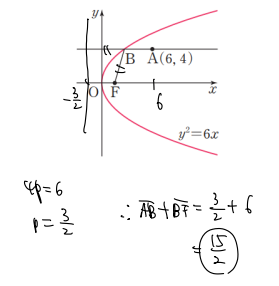 y
B A(6, 4)
O F x
-3/2
6
y²=6x
4p=6
p=3/2
∴ AB+BF=3/2+6
=15/2